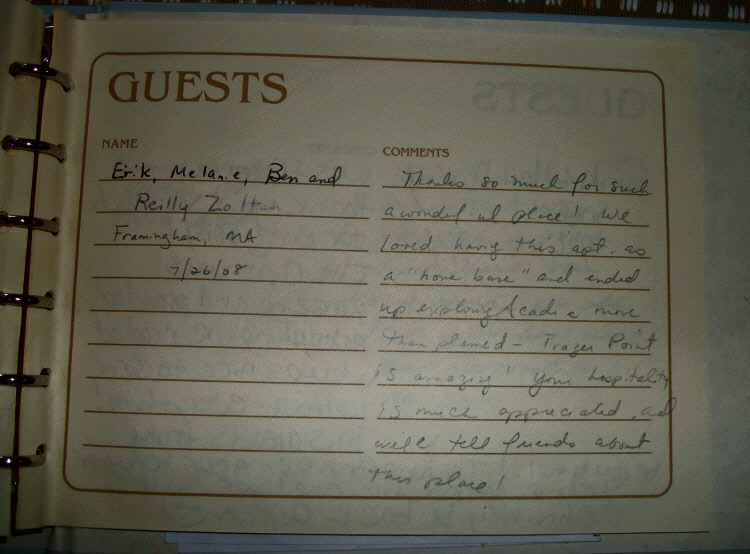 GUESTS
NAME
Erik, Melanie, Ben and
Reilly Zoltan
Framingham, MA
7/26/08
COMMENTS
Thanks so much for such
a wonderful place! We
loved having this apt. as
a "home base" and ended
up exploring Acadia more
than planned - Frazer Point
is amazing! Your hospitality
is much appreciated, and
will tell friends about
this place!